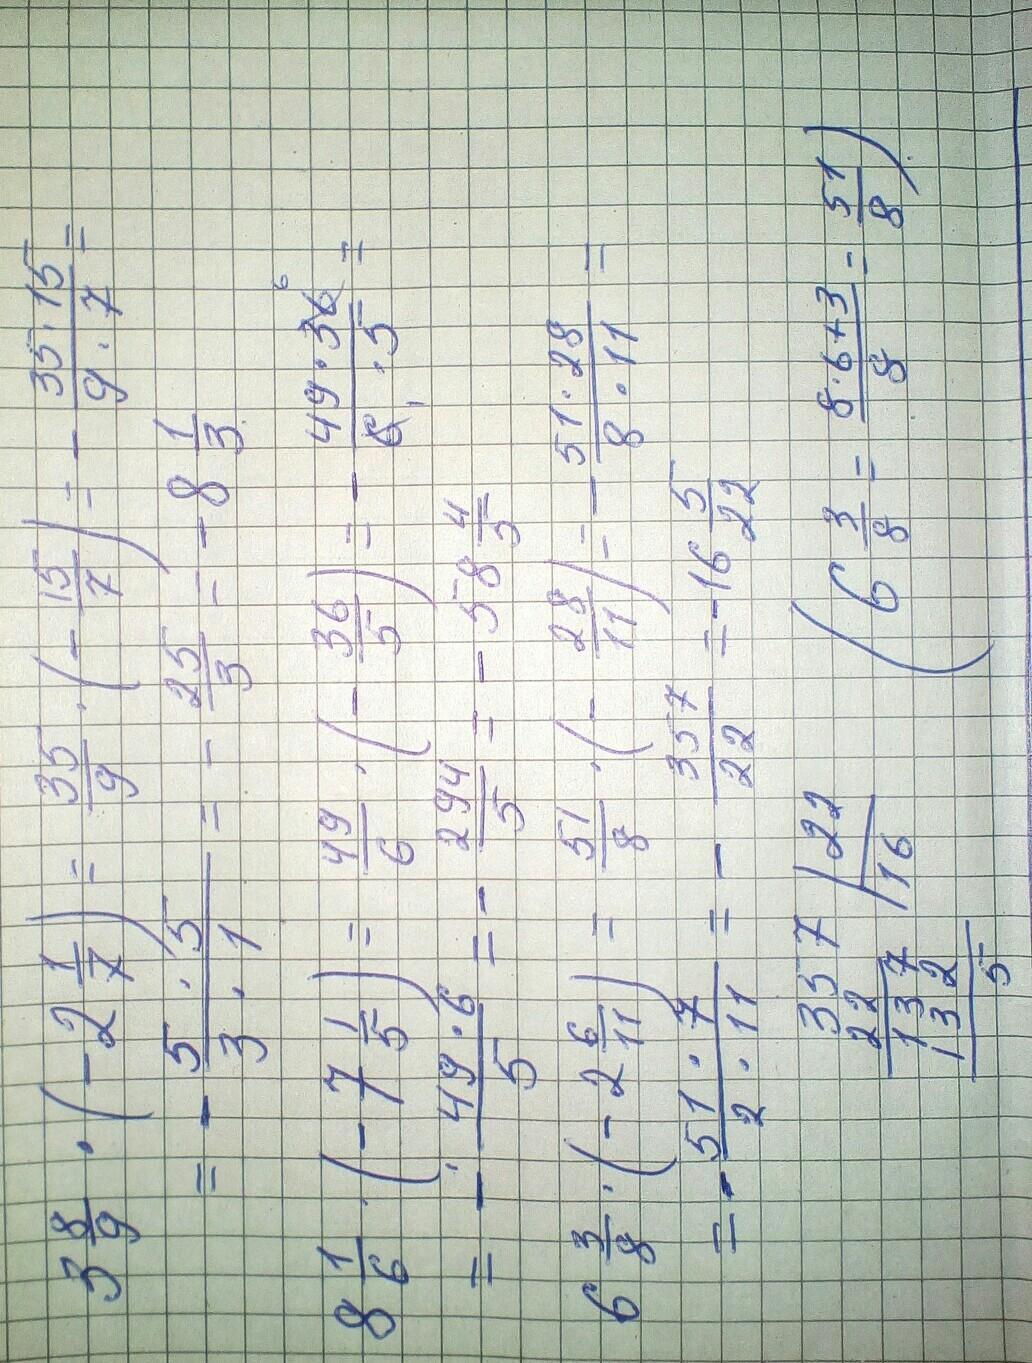 3 8/9 · (-2 1/7) = 35/9 · (-15/7) = - 35·15/9·7 =
= - 5·5/3·1 = - 25/3 = -8 1/3
8 1/6 · (-7 1/5) = 49/6 · (-36/5) = - 49·36 6/6 1·5 =
= - 49·6/5 = - 294/5 = -58 4/5
6 3/8 · (-2 6/11) = 51/8 · (-28/11) = - 51·28/8·11 =
= - 51·7/2·11 = - 357/22 = -16 5/22
357 | 22 (6 3/8 = 8·6+3/8 = 51/8)
22 16
137
132
5